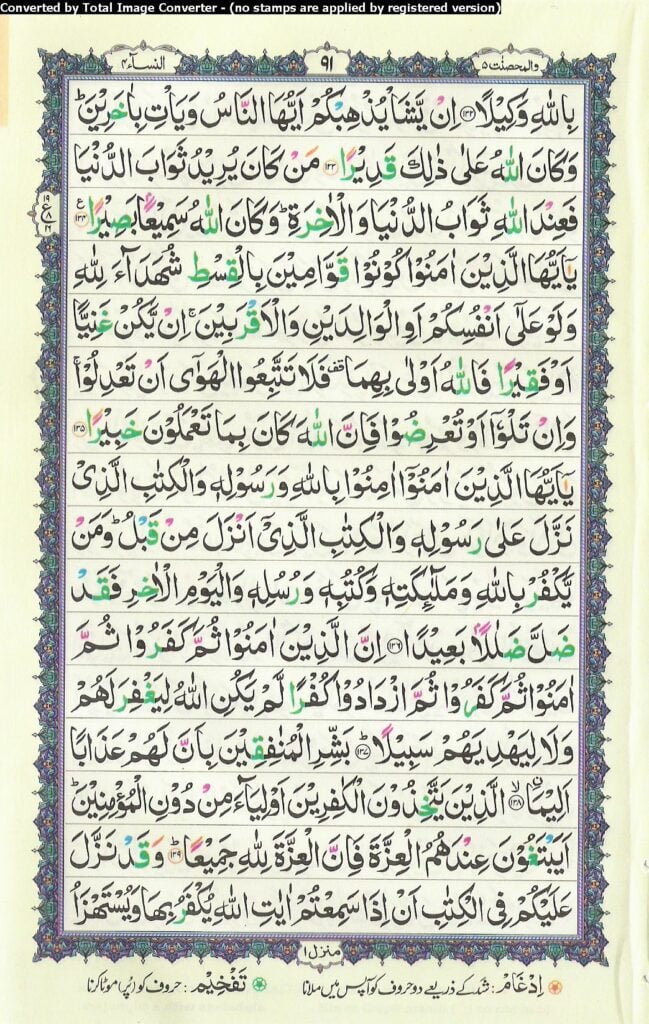 Converted by Total Image Converter - (no stamps are applied by registered version)
والمحصنت ٥
٩١
النسآء ٤
بِاللّٰهِ وَكِيْلًا ﴿۱۳۲﴾ اِنْ يَّشَاْ يُذْهِبْكُمْ اَيُّهَا النَّاسُ وَيَاْتِ بِاٰخَرِيْنَ ؕ
وَكَانَ اللّٰهُ عَلٰى ذٰلِكَ قَدِيْرًا ﴿۱۳۳﴾ مَنْ كَانَ يُرِيْدُ ثَوَابَ الدُّنْيَا
فَعِنْدَ اللّٰهِ ثَوَابُ الدُّنْيَا وَالْاٰخِرَةِ ؕ وَكَانَ اللّٰهُ سَمِيْعًۢا بَصِيْرًا ﴿۱۳۴﴾
ع
١٩
٨
يٰۤاَيُّهَا الَّذِيْنَ اٰمَنُوْا كُوْنُوْا قَوَّامِيْنَ بِالْقِسْطِ شُهَدَآءَ لِلّٰهِ
وَلَوْ عَلٰۤى اَنْفُسِكُمْ اَوِ الْوَالِدَيْنِ وَالْاَقْرَبِيْنَ ۚ اِنْ يَّكُنْ غَنِيًّا
اَوْ فَقِيْرًا فَاللّٰهُ اَوْلٰى بِهِمَا قف فَلَا تَتَّبِعُوا الْهَوٰۤى اَنْ تَعْدِلُوْا ۚ
وَاِنْ تَلْوٗۤا اَوْ تُعْرِضُوْا فَاِنَّ اللّٰهَ كَانَ بِمَا تَعْمَلُوْنَ خَبِيْرًا ﴿۱۳۵﴾
يٰۤاَيُّهَا الَّذِيْنَ اٰمَنُوْۤا اٰمِنُوْا بِاللّٰهِ وَرَسُوْلِهٖ وَالْكِتٰبِ الَّذِيْ
نَزَّلَ عَلٰى رَسُوْلِهٖ وَالْكِتٰبِ الَّذِيْۤ اَنْزَلَ مِنْ قَبْلُ ؕ وَمَنْ
يَّكْفُرْ بِاللّٰهِ وَمَلٰٓئِكَتِهٖ وَكُتُبِهٖ وَرُسُلِهٖ وَالْيَوْمِ الْاٰخِرِ فَقَدْ
ضَلَّ ضَلٰلًاۢ بَعِيْدًا ﴿۱۳۶﴾ اِنَّ الَّذِيْنَ اٰمَنُوْا ثُمَّ كَفَرُوْا ثُمَّ
اٰمَنُوْا ثُمَّ كَفَرُوْا ثُمَّ ازْدَادُوْا كُفْرًا لَّمْ يَكُنِ اللّٰهُ لِيَغْفِرَ لَهُمْ
وَلَا لِيَهْدِيَهُمْ سَبِيْلًا ؕ﴿۱۳۷﴾ بَشِّرِ الْمُنٰفِقِيْنَ بِاَنَّ لَهُمْ عَذَابًا
اَلِيْمَاۨ ۙ﴿۱۳۸﴾ الَّذِيْنَ يَتَّخِذُوْنَ الْكٰفِرِيْنَ اَوْلِيَآءَ مِنْ دُوْنِ الْمُؤْمِنِيْنَ ؕ
اَيَبْتَغُوْنَ عِنْدَهُمُ الْعِزَّةَ فَاِنَّ الْعِزَّةَ لِلّٰهِ جَمِيْعًا ؕ﴿۱۳۹﴾ وَقَدْ نَزَّلَ
عَلَيْكُمْ فِى الْكِتٰبِ اَنْ اِذَا سَمِعْتُمْ اٰيٰتِ اللّٰهِ يُكْفَرُ بِهَا وَيُسْتَهْزَاُ
منزل ١
اِدْغَام: شد کے ذریعے دو حروف کو آپس میں ملانا
تَفْخِیْم: حروف کو (پُر) موٹا کرنا